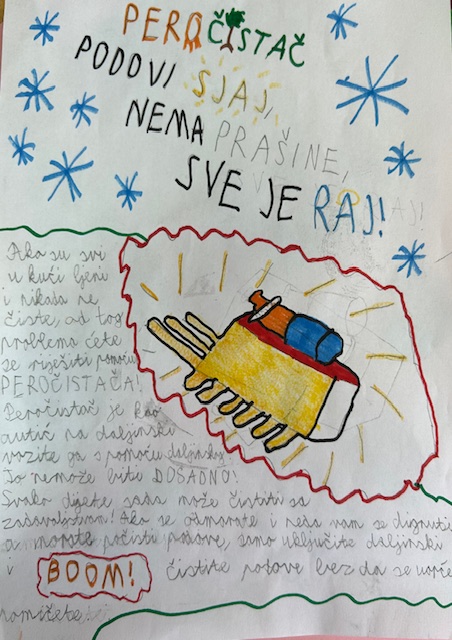 PEROČISTAČ
PODOVI SJAJ,
NEMA PRAŠINE,
SVE JE RAJ!
Ako su svi
u kući ljeni
i nikada ne
čiste, od tog
problema ćete
se riješiti pomoću
PEROČISTAČA!
Peročistač je kao
autić na daljinski
vozite ga s pomoću daljinskog
To nemože biti DOSADNO!
Svako dijete sada može čistiti sa
zadovoljstvom! Ako se odmarate i neda vam se dignuti
a morate počistiti podove, samo uključite daljinski
i BOOM! čistite podove bez da se uopće
pomičete!